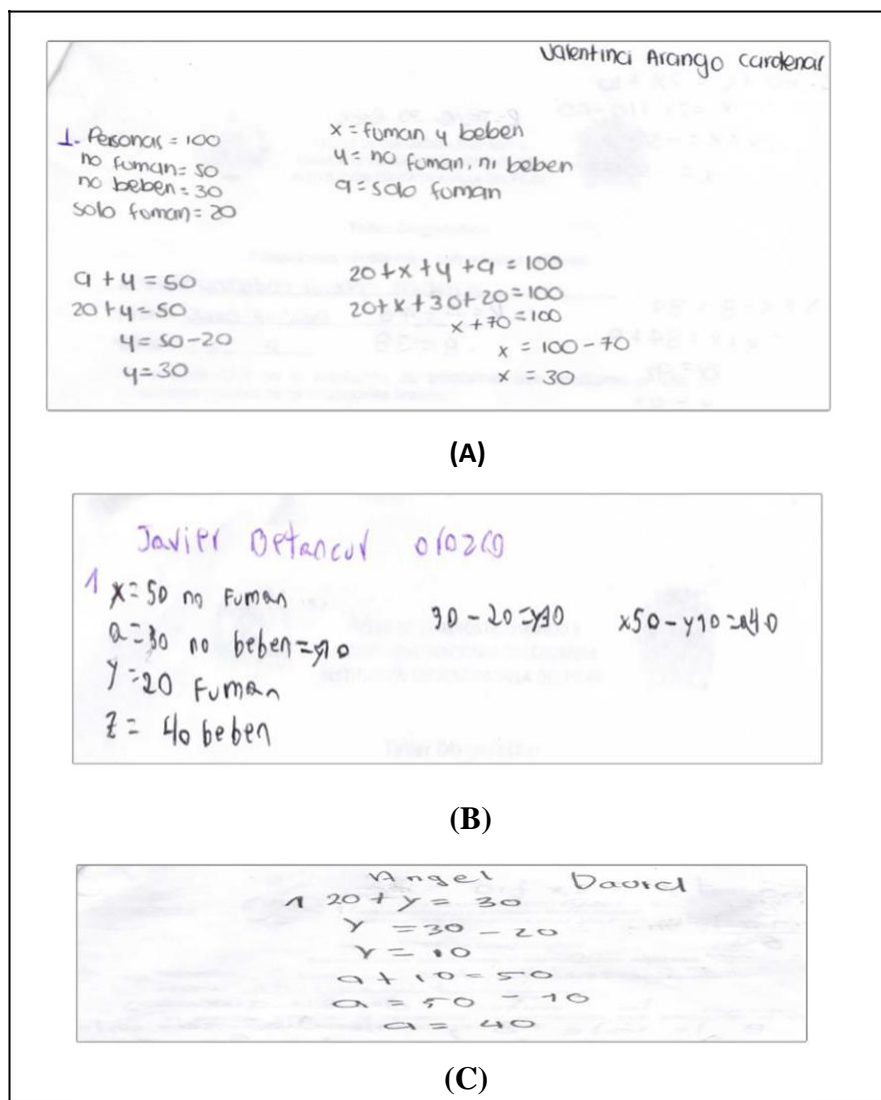 Valentina Arango Cardenas
1. Personas = 100
no fuman = 50
no beben = 30
solo fuman = 20
x = fuman y beben
y = no fuman, ni beben
a = solo fuman
a + y = 50
20 + y = 50
y = 50 - 20
y = 30
20 + x + y + a = 100
20 + x + 30 + 20 = 100
x + 70 = 100
x = 100 - 70
x = 30
(A)
Javier Betancur orozco
1 x = 50 no Fuman
a = 30 no beben =
y = 20 Fuman
z = 40 beben
30 - 20 =
x50 - y10 =
(B)
Angel David
1 20 + y = 30
y = 30 - 20
y = 10
a + 10 = 50
a = 50 - 10
a = 40
(C)